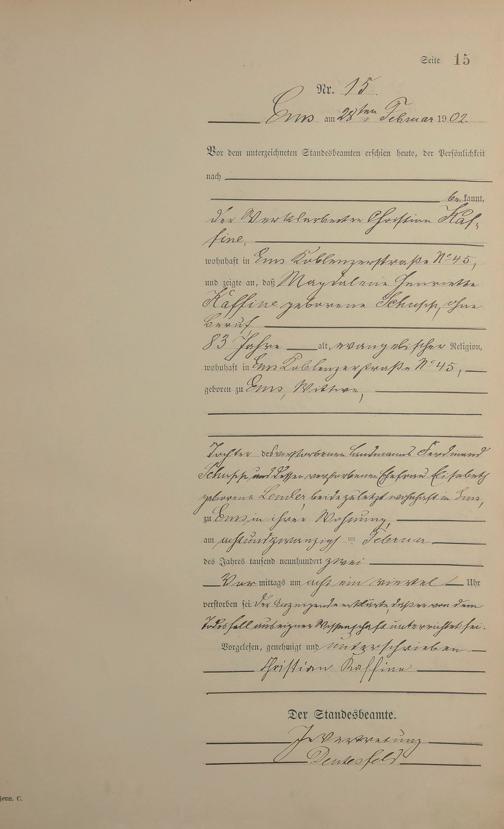 Seite 15
Nr. 15.
Ems am 28ten Februar 1902.
Vor dem unterzeichneten Standesbeamten erschien heute, der Persönlichkeit
nach
be kannt,
der Werkarbeiter Christian Kaf-
fine,
wohnhaft in Ems Koblenzerstraße No 45,
und zeigte an, daß Magdalene Henriette
Kaffine geborene Schupp, ohne
Beruf
83 Jahre alt, evangelischer Religion,
wohnhaft in Ems Koblenzerstraße No 45,
geboren zu Ems, Witwe,
Tochter des verstorbenen Landmanns Ferdinand
Schupp und dessen verstorbenen Ehefrau Elisabeth
geborene beide zuletzt wohnhaft in Ems,
zu Ems in ihrer Wohnung,
am achtundzwanzigsten Februar
des Jahres tausend neunhundert zwei
Vor mittags um acht ein viertel Uhr
verstorben sei. Der Anzeigende erklärte, daß er von dem
Todesfall aus eigner Wissenschaft unterrichtet sei.
Vorgelesen, genehmigt und unterschrieben
Christian Kaffine
Der Standesbeamte.
In Vertretung